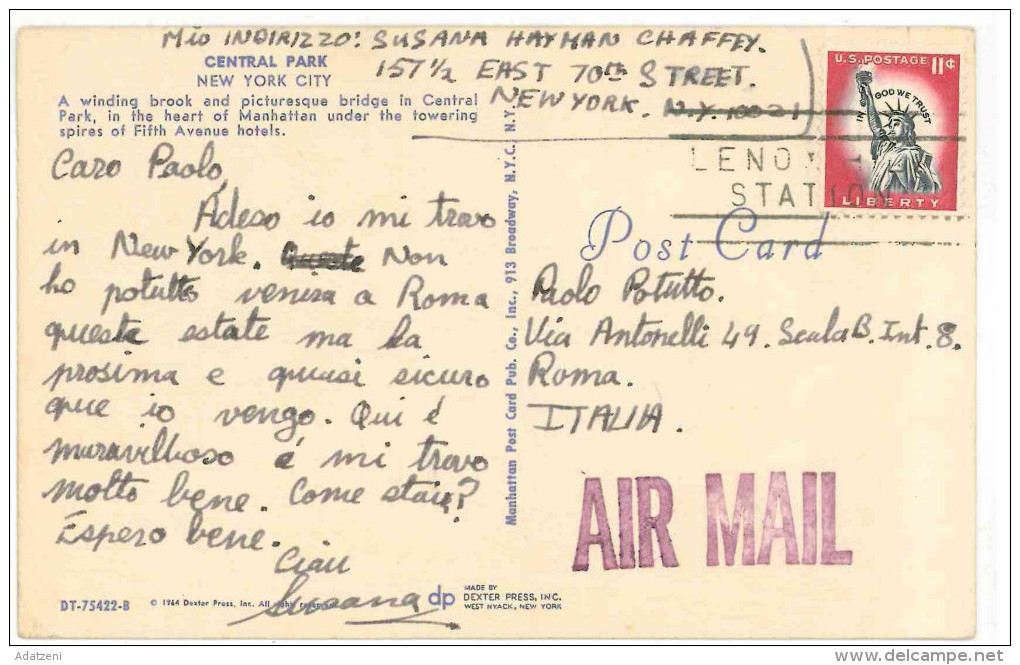 Mio INDIRIZZO: SUSANA HAYMAN CHAFFEY.
157 1/2 EAST 70th STREET.
NEW YORK. N.Y. 10021
CENTRAL PARK
NEW YORK CITY
A winding brook and picturesque bridge in Central
Park, in the heart of Manhattan under the towering
spires of Fifth Avenue hotels.
Caro Paolo,
Adeso io mi trovo
in New York. Non
ho potutto venira a Roma
questa estate ma la
prosima e quasi sicuro
que io vengo. Qui é
maravilhoso é mi trovo
molto bene. Come staie?
Espero bene.
Ciau
Susana
DT-75422-B
© 1964 Dexter Press, Inc. All rights reserved
dp
MADE BY
DEXTER PRESS, INC.
WEST NYACK, NEW YORK
Manhattan Post Card Pub. Co., Inc., 913 Broadway, N.Y.C. N.Y.
U.S. POSTAGE 11¢
IN GOD WE TRUST
LIBERTY
LENOX
STATION
Post Card
Paolo Potutto.
Via Antonelli 49. Scala B. Int. 8.
Roma.
ITALIA.
AIR MAIL
Adatzeni
delcampe.net